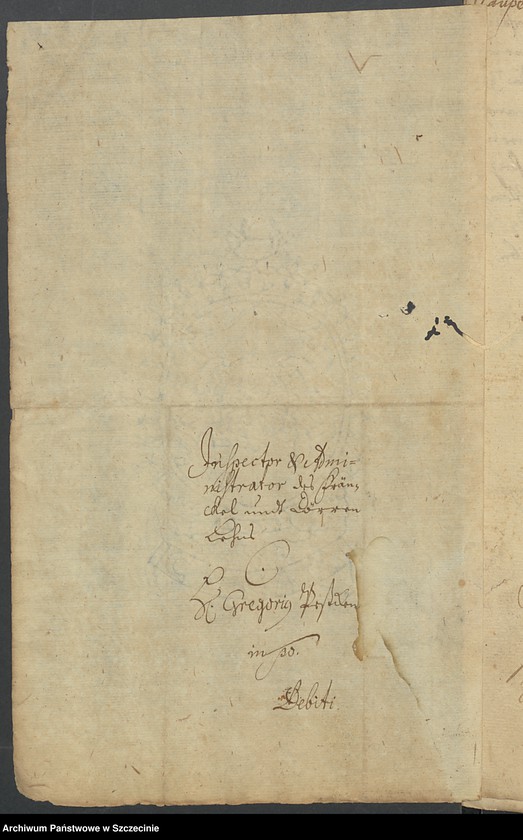 Inspector & Admi-
nistrator des Frän-
ckel undt
Lehns
C.
H. Gregoriu
in pp.
Debiti
Archiwum Państwowe w Szczecinie